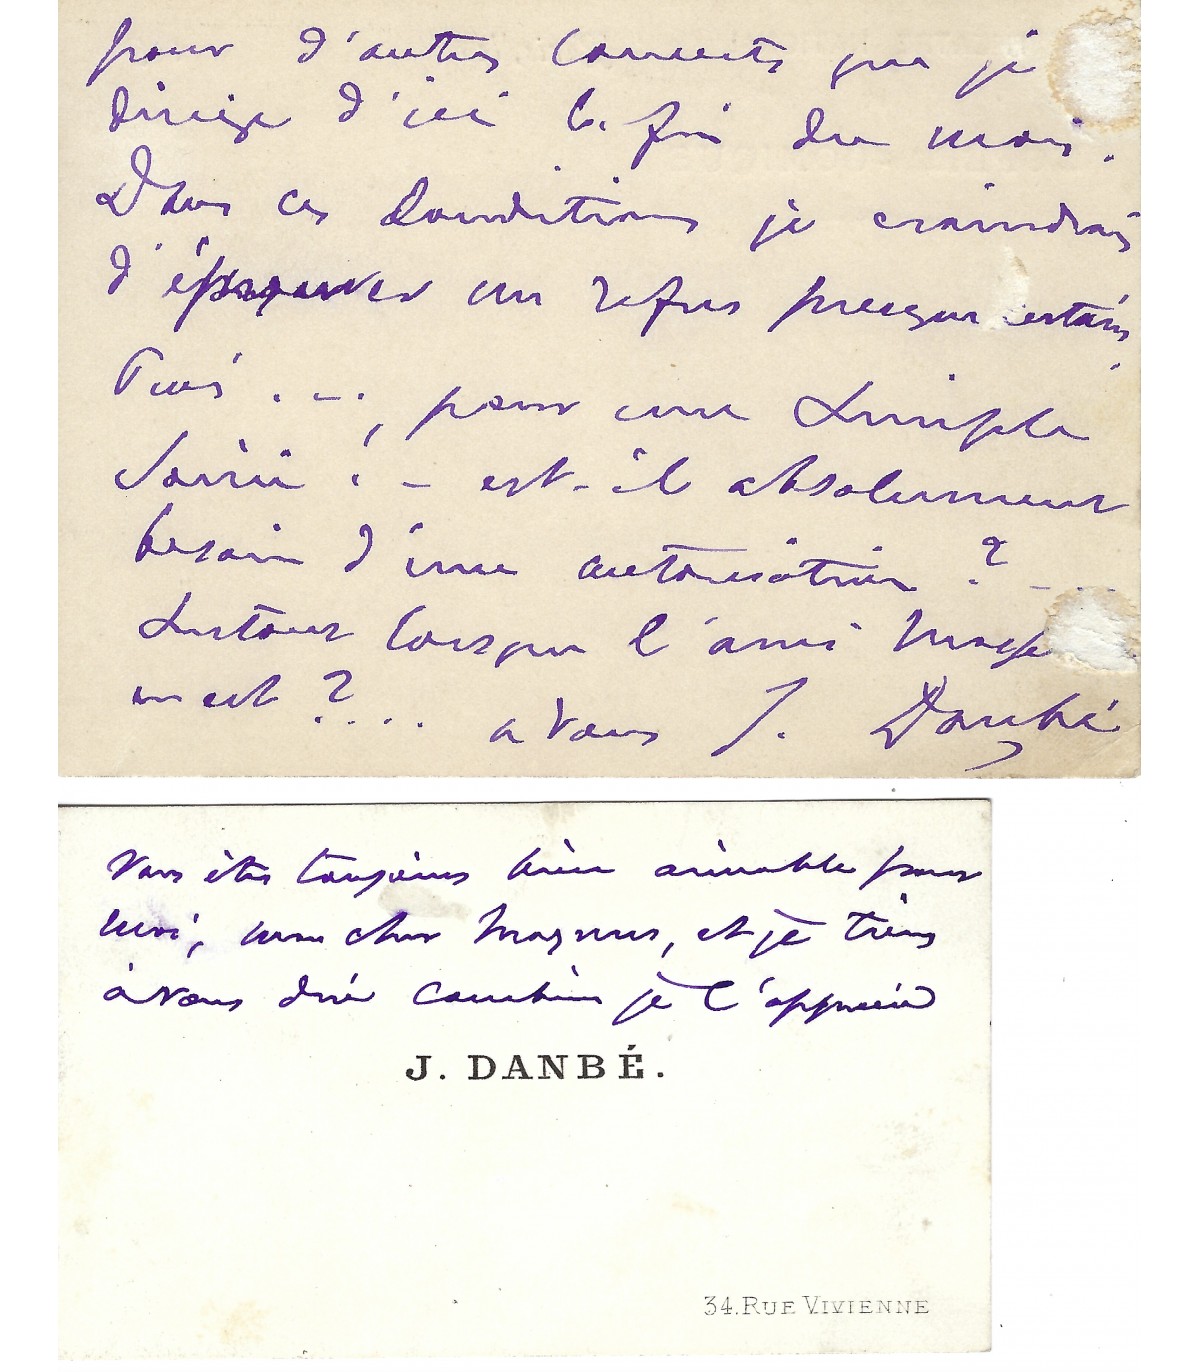 pour d'autres concerts que je
dirige d'ici la fin du mois.
Dans ces conditions je craindrais
d'éprouver un refus presque certain.
Puis . _ . , pour une simple
soirée ! _ est-il absolument
besoin d'une autorisation ? _ ...
surtout lorsque l'ami
en est ? ....
à vous J. Danbé
Vous êtes toujours bien aimable pour
moi, mon cher Magnus, et je tiens
à vous dire combien je l'apprécie
J. DANBÉ.
34. RUE VIVIENNE